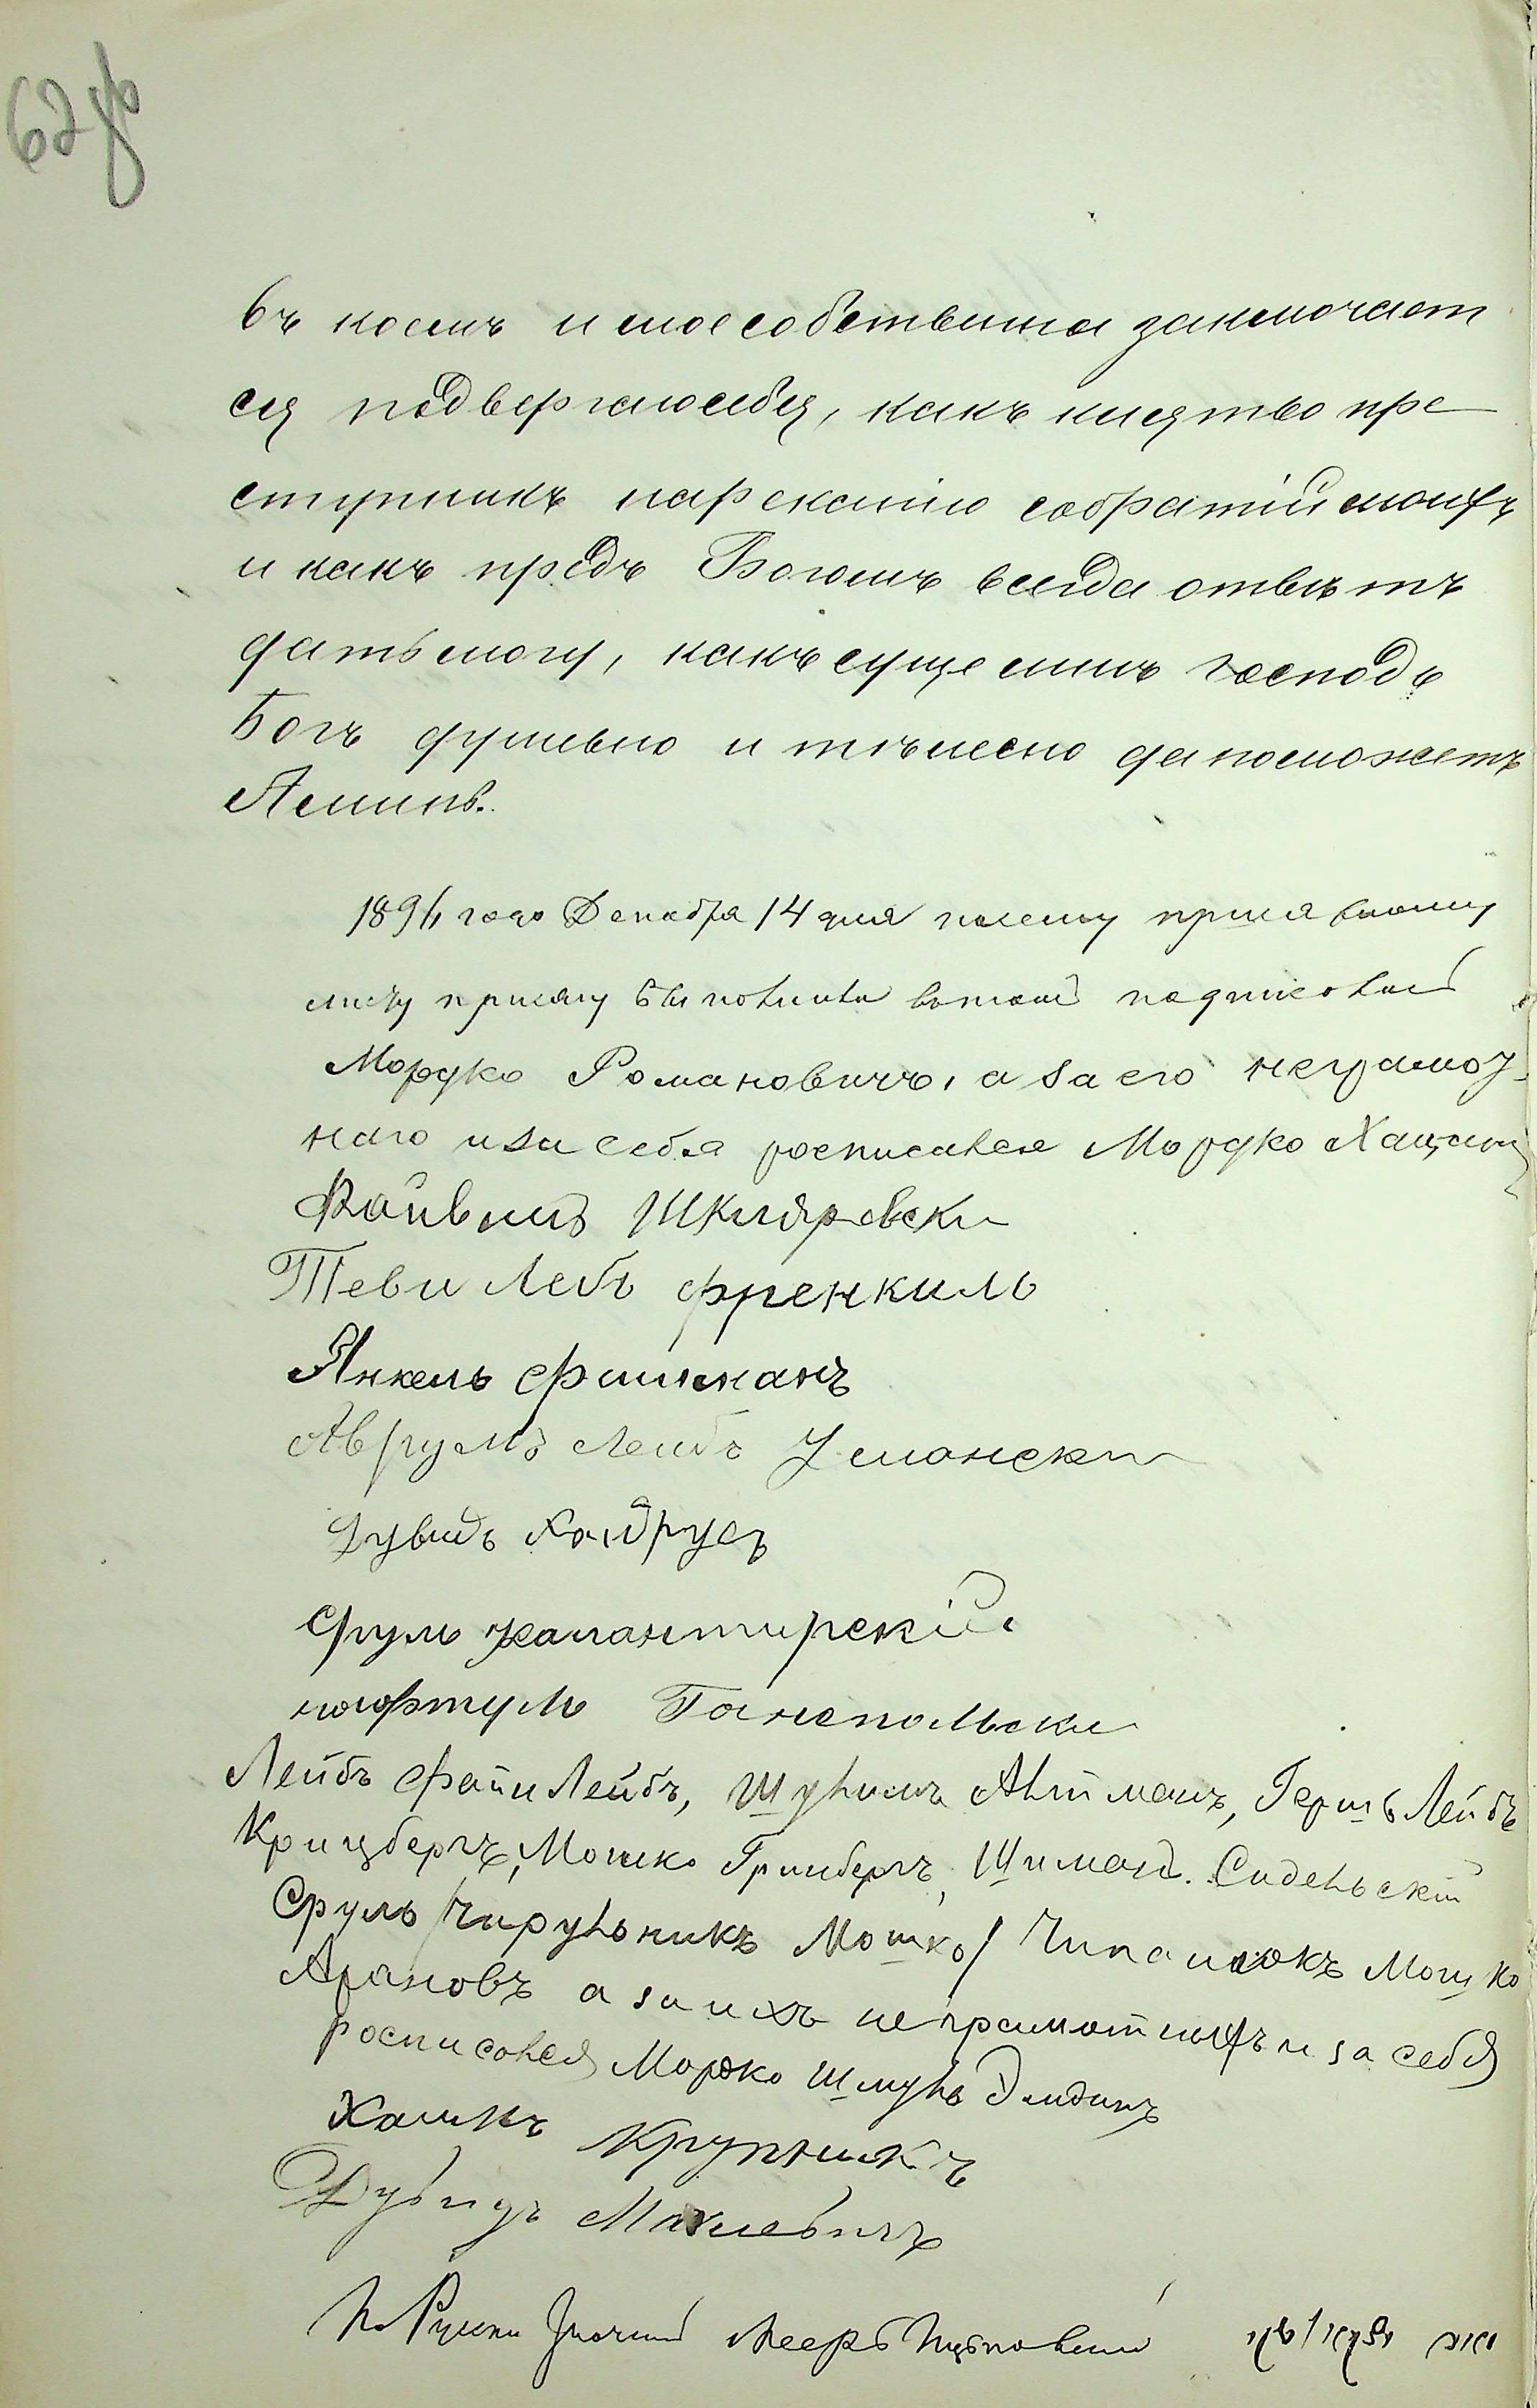 62 об
въ коемъ и мое собственна заключает
ся подвергаю себя, какъ клятво пре
ступникъ нареканію собратій моихъ
и какъ предъ Богомъ всегда отвѣтъ
дать могу, какъ суще мнѣ господь
Богъ душевно и тѣлесно да поможетъ
Аминь.
1894 года Декабря 14 дня по сему присяжному
листу присягу выполнили въ томъ
Мордко Романовичъ, а за его неграмот-
наго и за себя росписался Мордко
Файвишъ Шкляревски
Теви Лебъ Френкиль
Янкель Фишманъ
Аврумъ Лейбъ Умански
Дувидъ
Сруль Калантирскій
нафтуль Ганапольски
Лейбъ Файнлейбъ, Шулимъ Альтманъ, Гершъ Лейбъ
Крицбергъ, Мошко Гринбергъ, Шиманъ. Сидельскій
Сруль Чирульникъ Мошко Чипалюкъ Мошко
Арановъ а за ихъ неграмотныхъ и за себя
росписался Мордко Шмуль Элидинъ
Хаимъ Крупникъ
Дувидъ Махлевичъ
П. Руски Мееръ